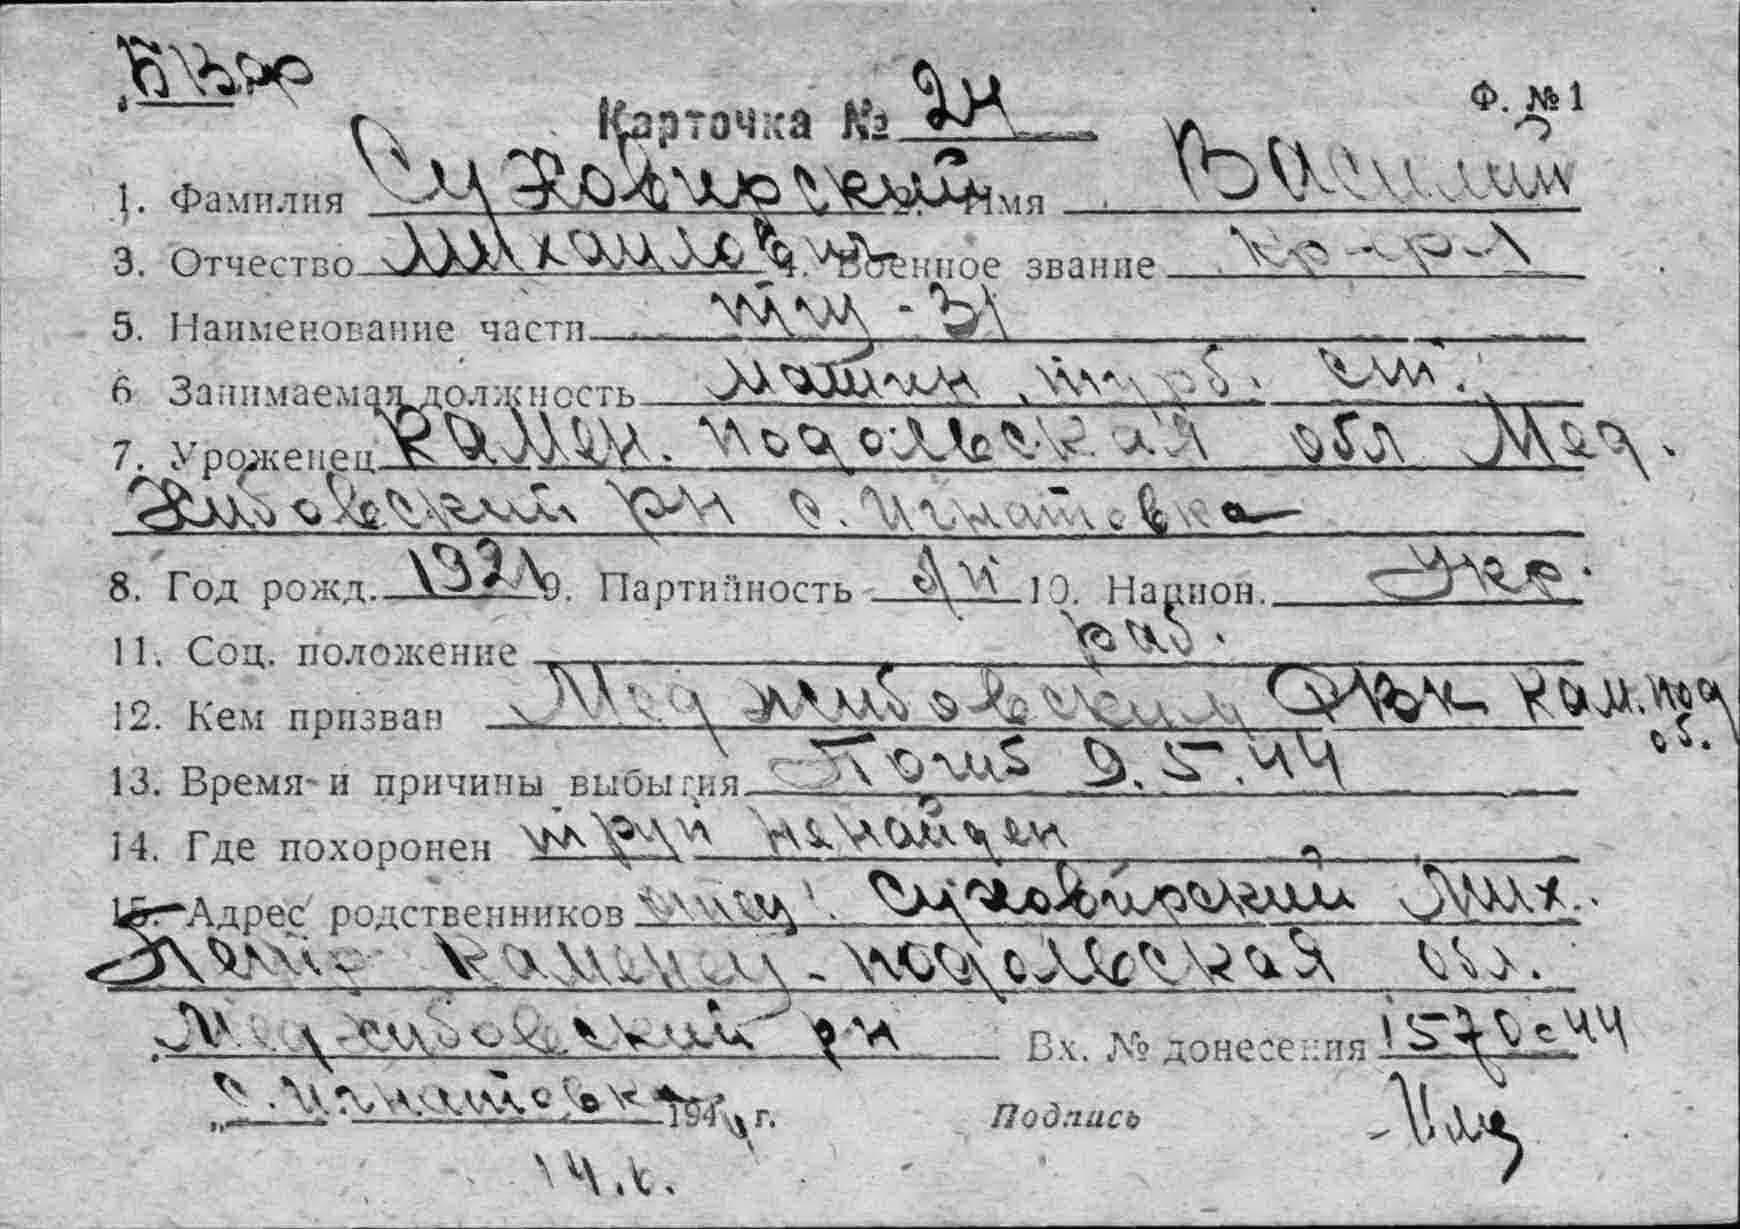 Ф. № 1
Карточка № 24
1. Фамилия Суховирский 2. Имя Василий
3. Отчество Михайлович 4. Военное звание кр-р-1
5. Наименование части тщ-31
6 Занимаемая должность машин. турб. ст.
7. Уроженец Камен. подольская обл Мед.
жибовский рн с. Игнатовка
8. Год рожд. 1921 9. Партийность б/п 10. Национ. Укр.
11. Соц. положение раб.
12. Кем призван Меджибовским РВК Кам. под
об.
13. Время и причины выбытия Погиб 9.5.44
14. Где похоронен труп ненайден
15. Адрес родственников отец: Суховирский Мих.
Петр Каменец-подольская обл.
Меджибовский рн Вх. № донесения 1570с 44
с. Игнатовка 1944 г. Подпись
14.6.